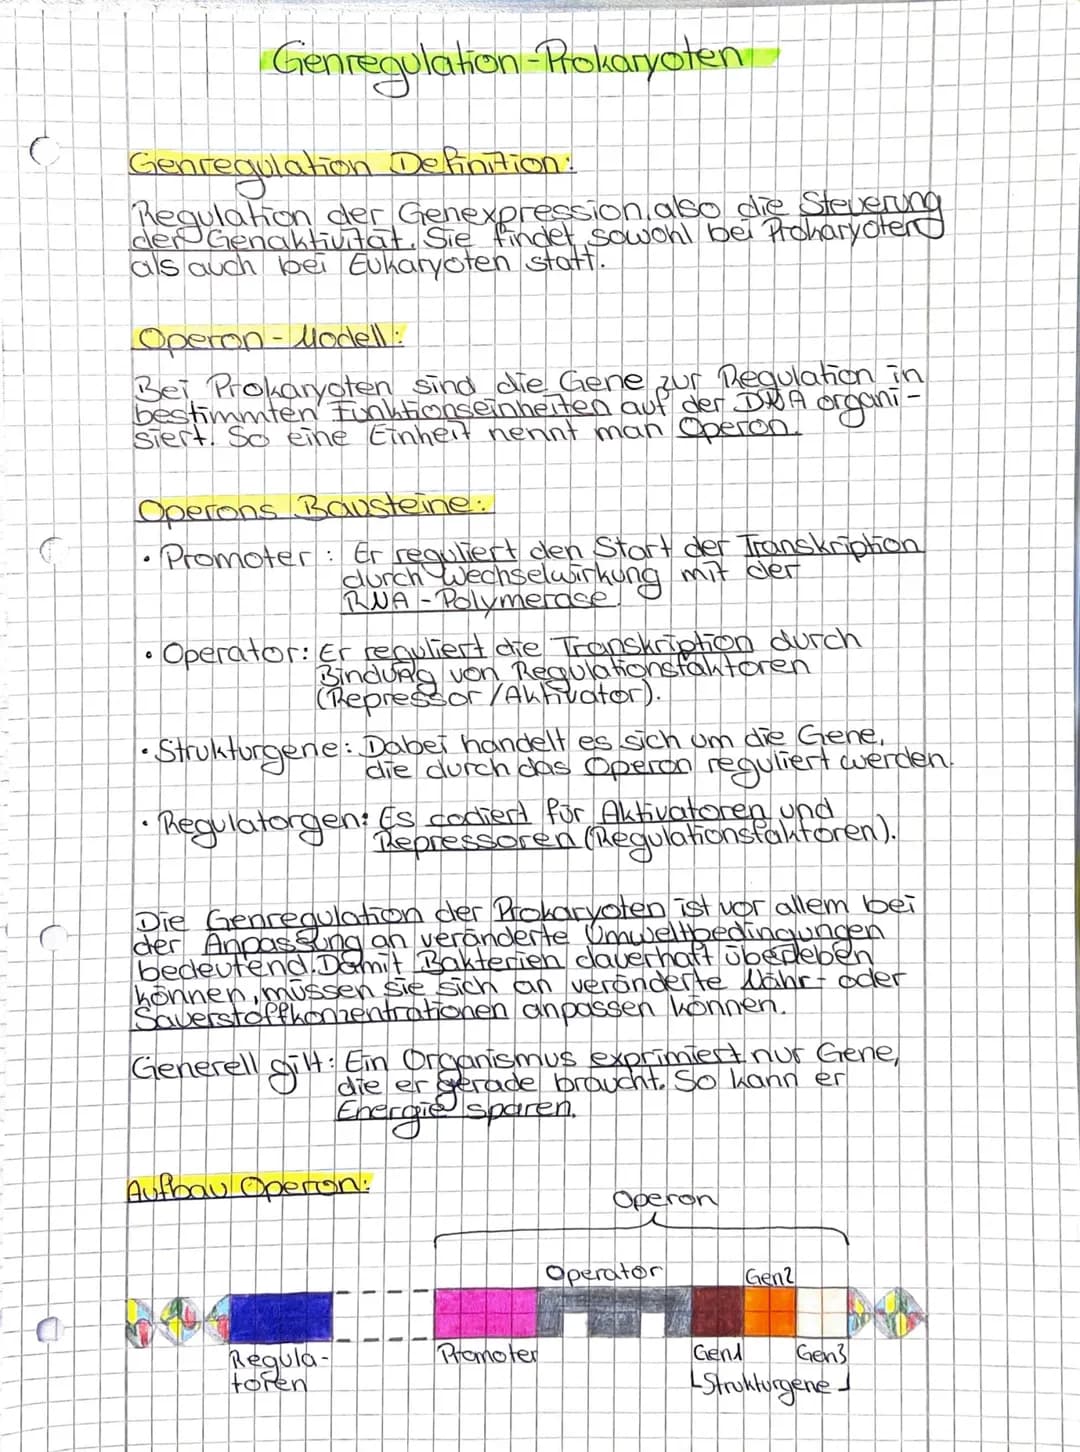 Genregulation-Prokaryoten
Genregulation Definition:
Regulation der Genexpression, also die Steuerung
der Genaktivität. Sie findet sowohl bei Prokaryoten
als auch bei Eukaryoten statt.
Operon-Modell:
Bei Prokaryoten sind die Gene zur Regulation in
bestimmten Funktionseinheiten auf der DNA organi-
siert. So eine Einheit nennt man Operon.
Operons Bausteine:
• Promoter: Er reguliert den Start der Transkription
durch Wechselwirkung mit der
RNA-Polymerase.
• Operator: Er reguliert die Transkription durch
Bindung von Regulationsfaktoren
(Repressor/Aktivator).
• Strukturgene: Dabei handelt es sich um die Gene,
die durch das Operon reguliert werden.
• Regulatorgen: Es codiert für Aktivatoren und
Repressoren (Regulationsfaktoren).
Die Genregulation der Prokaryoten ist vor allem bei
der Anpassung an veränderte Umweltbedingungen
bedeutend. Damit Bakterien dauerhaft überleben
können, müssen sie sich an veränderte Nähr- oder
Sauerstoffkonzentrationen anpassen können.
Generell gilt: Ein Organismus exprimiert nur Gene,
die er gerade braucht. So kann er
Energie sparen.
Aufbau Operon:
Operon
Operator
Gen2
Regula-
toren
Promoter
Gen1
Gen3
Strukturgene